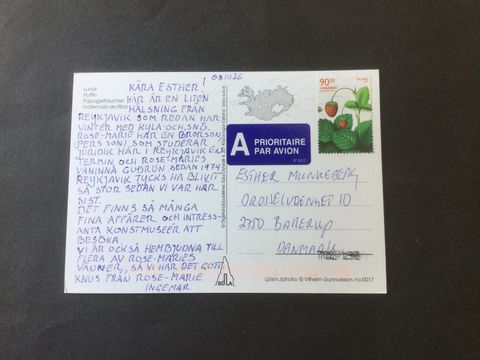 081026
Lundi
Puffin
Papageitaucher
Fratercula arctica
KÄRA ESTHER!
HÄR ÄR EN LITEN
HÄLSNING FRÅN
REYKJAVIK SOM REDAN HAR
VINTER MED KYLA OCH SNÖ.
ROSE-MARIE HAR EN BRORSON
(PERSSON) SOM STUDERAR
JURIDIK HÄR I REYKJAVIK EN
TERMIN OCH ROSE-MARIES
VÄNINNA GUDRUN SEDAN 1974.
REYKJAVIK TYCKS HA BLIVIT
SÅ STOR SEDAN VI VAR HÄR
SIST.
DET FINNS SÅ MÅNGA
FINA AFFÄRER OCH INTRESS-
ANTA KONSTMUSEER ATT
BESÖKA
VI ÄR OCKSÅ HEMBJUDNA TILL
FLERA AV ROSE-MARIES
VÄNNER, SÅ VI HAR DET GOTT
KNUS FRÅN ROSE-MARIE
INGEMAR
SÓLA
A PRIORITAIRE
PAR AVION
9000
ESTHER MUNKEBERG
2750 BALLERUP
DANMARK
Ljósm./photo: © Vilhelm Gunnarsson, no.0017